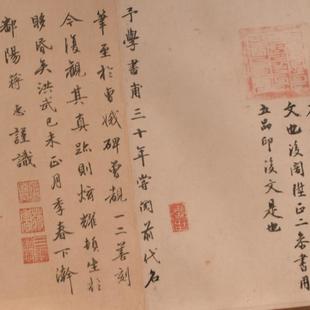 文也後閱陞正二系書用
五品印後文是也
予學書甫三十年嘗聞前代名
筆至於曹娥碑曾觀一二善刻
今復觀其真跡則炫耀頓生於
眵昏矣洪武己未正月季春下澣
鄱陽蔣惠謹識